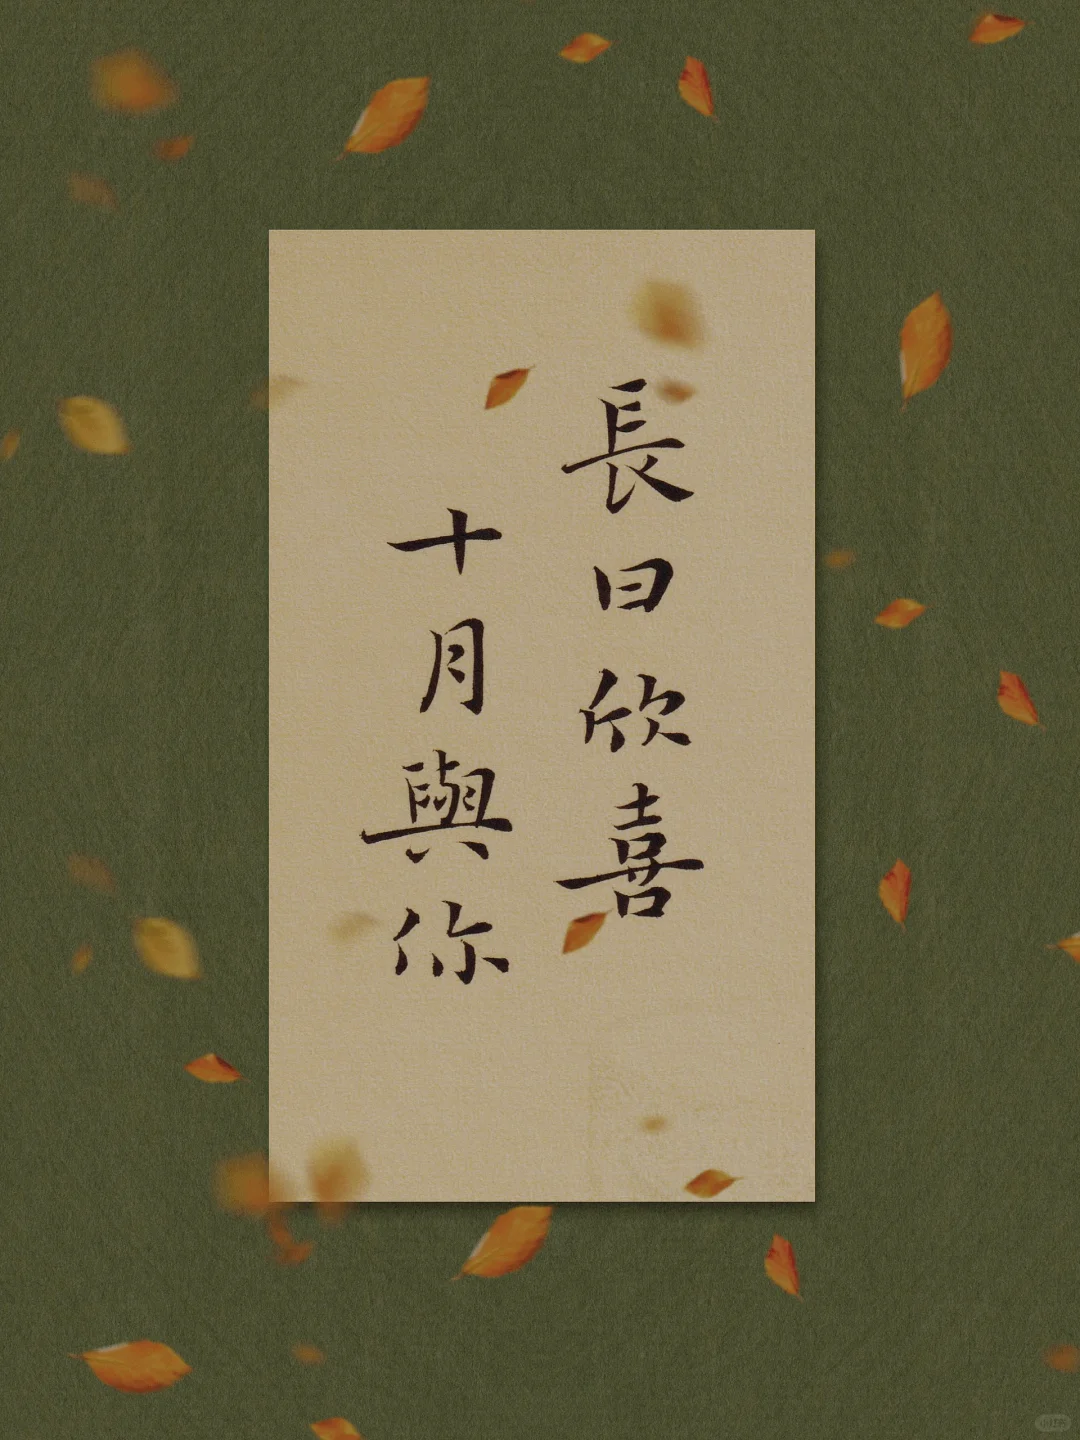 長日欣喜
十月與你